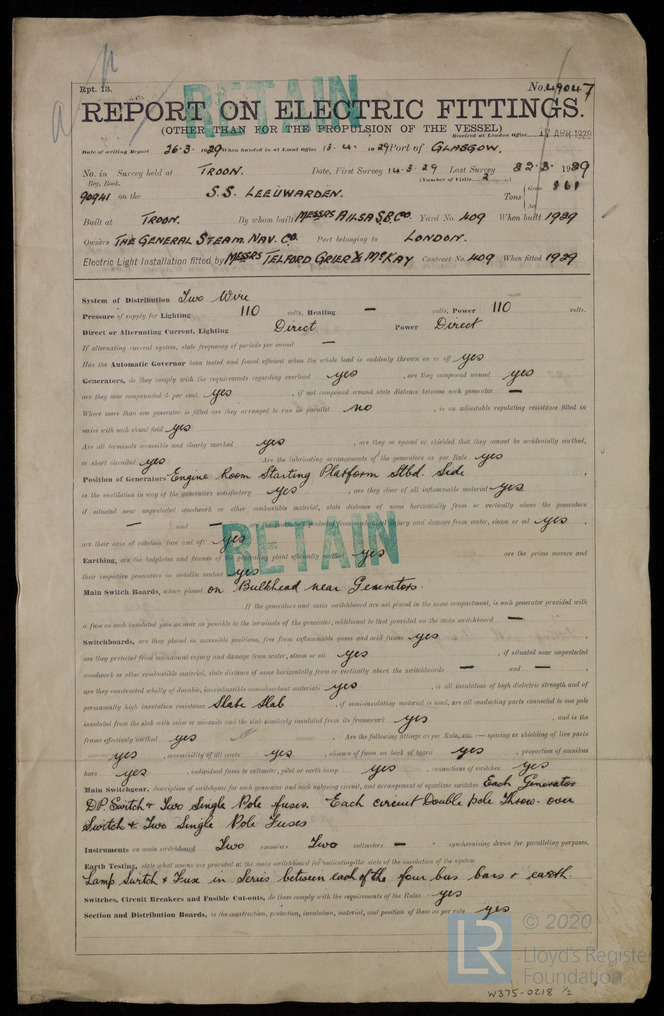 RETAIN
Rpt. 13. No. 49047
REPORT ON ELECTRIC FITTINGS.
(OTHER THAN FOR THE PROPULSION OF THE VESSEL)
Received at London Office 17 APR 1929
Date of writing Report 26.3.1929 When handed in at Local Office 13.4.1929 Port of GLASGOW.
No. in Survey held at TROON. Date, First Survey 14.3.29 Last Survey 22.3.1929
Reg. Book. (Number of Visits 2)
90941 on the S.S. LEEUWARDEN. Tons { Gross 861 Net
Built at TROON. By whom built MESSRS AILSA S.B. CO. Yard No. 409 When built 1929
Owners THE GENERAL STEAM NAV. CO. Port belonging to LONDON.
Electric Light Installation fitted by MESSRS TELFORD GRIER & McKAY Contract No. 409 When fitted 1929
System of Distribution Two Wire
Pressure of supply for Lighting 110 volts, Heating — volts, Power 110 volts.
Direct or Alternating Current, Lighting Direct Power Direct
If alternating current system, state frequency of periods per second —
Has the Automatic Governor been tested and found efficient when the whole load is suddenly thrown on or off yes
Generators, do they comply with the requirements regarding overload yes, are they compound wound yes
are they over compounded 5 per cent. yes, if not compound wound state distance between each generator —
Where more than one generator is fitted are they arranged to run in parallel no, is an adjustable regulating resistance fitted in
series with each shunt field yes
Are all terminals accessible and clearly marked yes, are they so spaced or shielded that they cannot be accidentally earthed,
or short circuited yes Are the lubricating arrangements of the generators as per Rule yes
Position of Generators Engine Room Starting Platform Stbd. Side
is the ventilation in way of the generators satisfactory yes, are they clear of all inflammable material yes
if situated near unprotected woodwork or other combustible material, state distance of same horizontally from or vertically above the generators
— and — injury and damage from water, steam or oil yes,
are their axes of rotation fore and aft yes
RETAIN
Earthing, are the bedplates and frames of the generating plant efficiently earthed yes are the prime movers and
their respective generators in metallic contact yes
Main Switch Boards, where placed on Bulkhead near Generators.
If the generators and main switchboard are not placed in the same compartment, is each generator provided with
a fuse on each insulated pole as near as possible to the terminals of the generator, additional to that provided on the main switchboard —
Switchboards, are they placed in accessible positions, free from inflammable gases and acid fumes yes,
are they protected from mechanical injury and damage from water, steam or oil yes, if situated near unprotected
woodwork or other combustible material, state distance of same horizontally from or vertically above the switchboards — and —
are they constructed wholly of durable, incombustible non-absorbent materials yes, is all insulation of high dielectric strength and of
permanently high insulation resistance Slate Slab, if semi-insulating material is used, are all conducting parts connected to one pole
insulated from the slab with mica or micanite and the slab similarly insulated from its framework yes, and is the
frame effectively earthed yes. Are the following fittings as per Rule, viz.:— spacing or shielding of live parts
yes, accessibility of all parts yes, absence of fuses on back of board yes, proportion of omnibus
bars yes, individual fuses to voltmeter, pilot or earth lamp yes, connections of switches yes
Main Switchgear, description of switchgear for each generator and each outgoing circuit, and arrangement of equalizer switches Each Generator
D.P. Switch & Two Single Pole fuses. Each circuit Double pole Throw-over
Switch & Two Single Pole Fuses
Instruments on main switchboard Two ammeters Two voltmeters — synchronising device for paralleling purposes.
Earth Testing, state what means are provided at the main switchboard for indicating the state of the insulation of the system
Lamp Switch & Fuse in Series between each of the four bus bars & earth
Switches, Circuit Breakers and Fusible Cut-outs, do these comply with the requirements of the Rules yes
Section and Distribution Boards, is the construction, protection, insulation, material, and position of these as per rule yes
© 2020
LR Lloyd's Register
Foundation
W375-0218 1/2